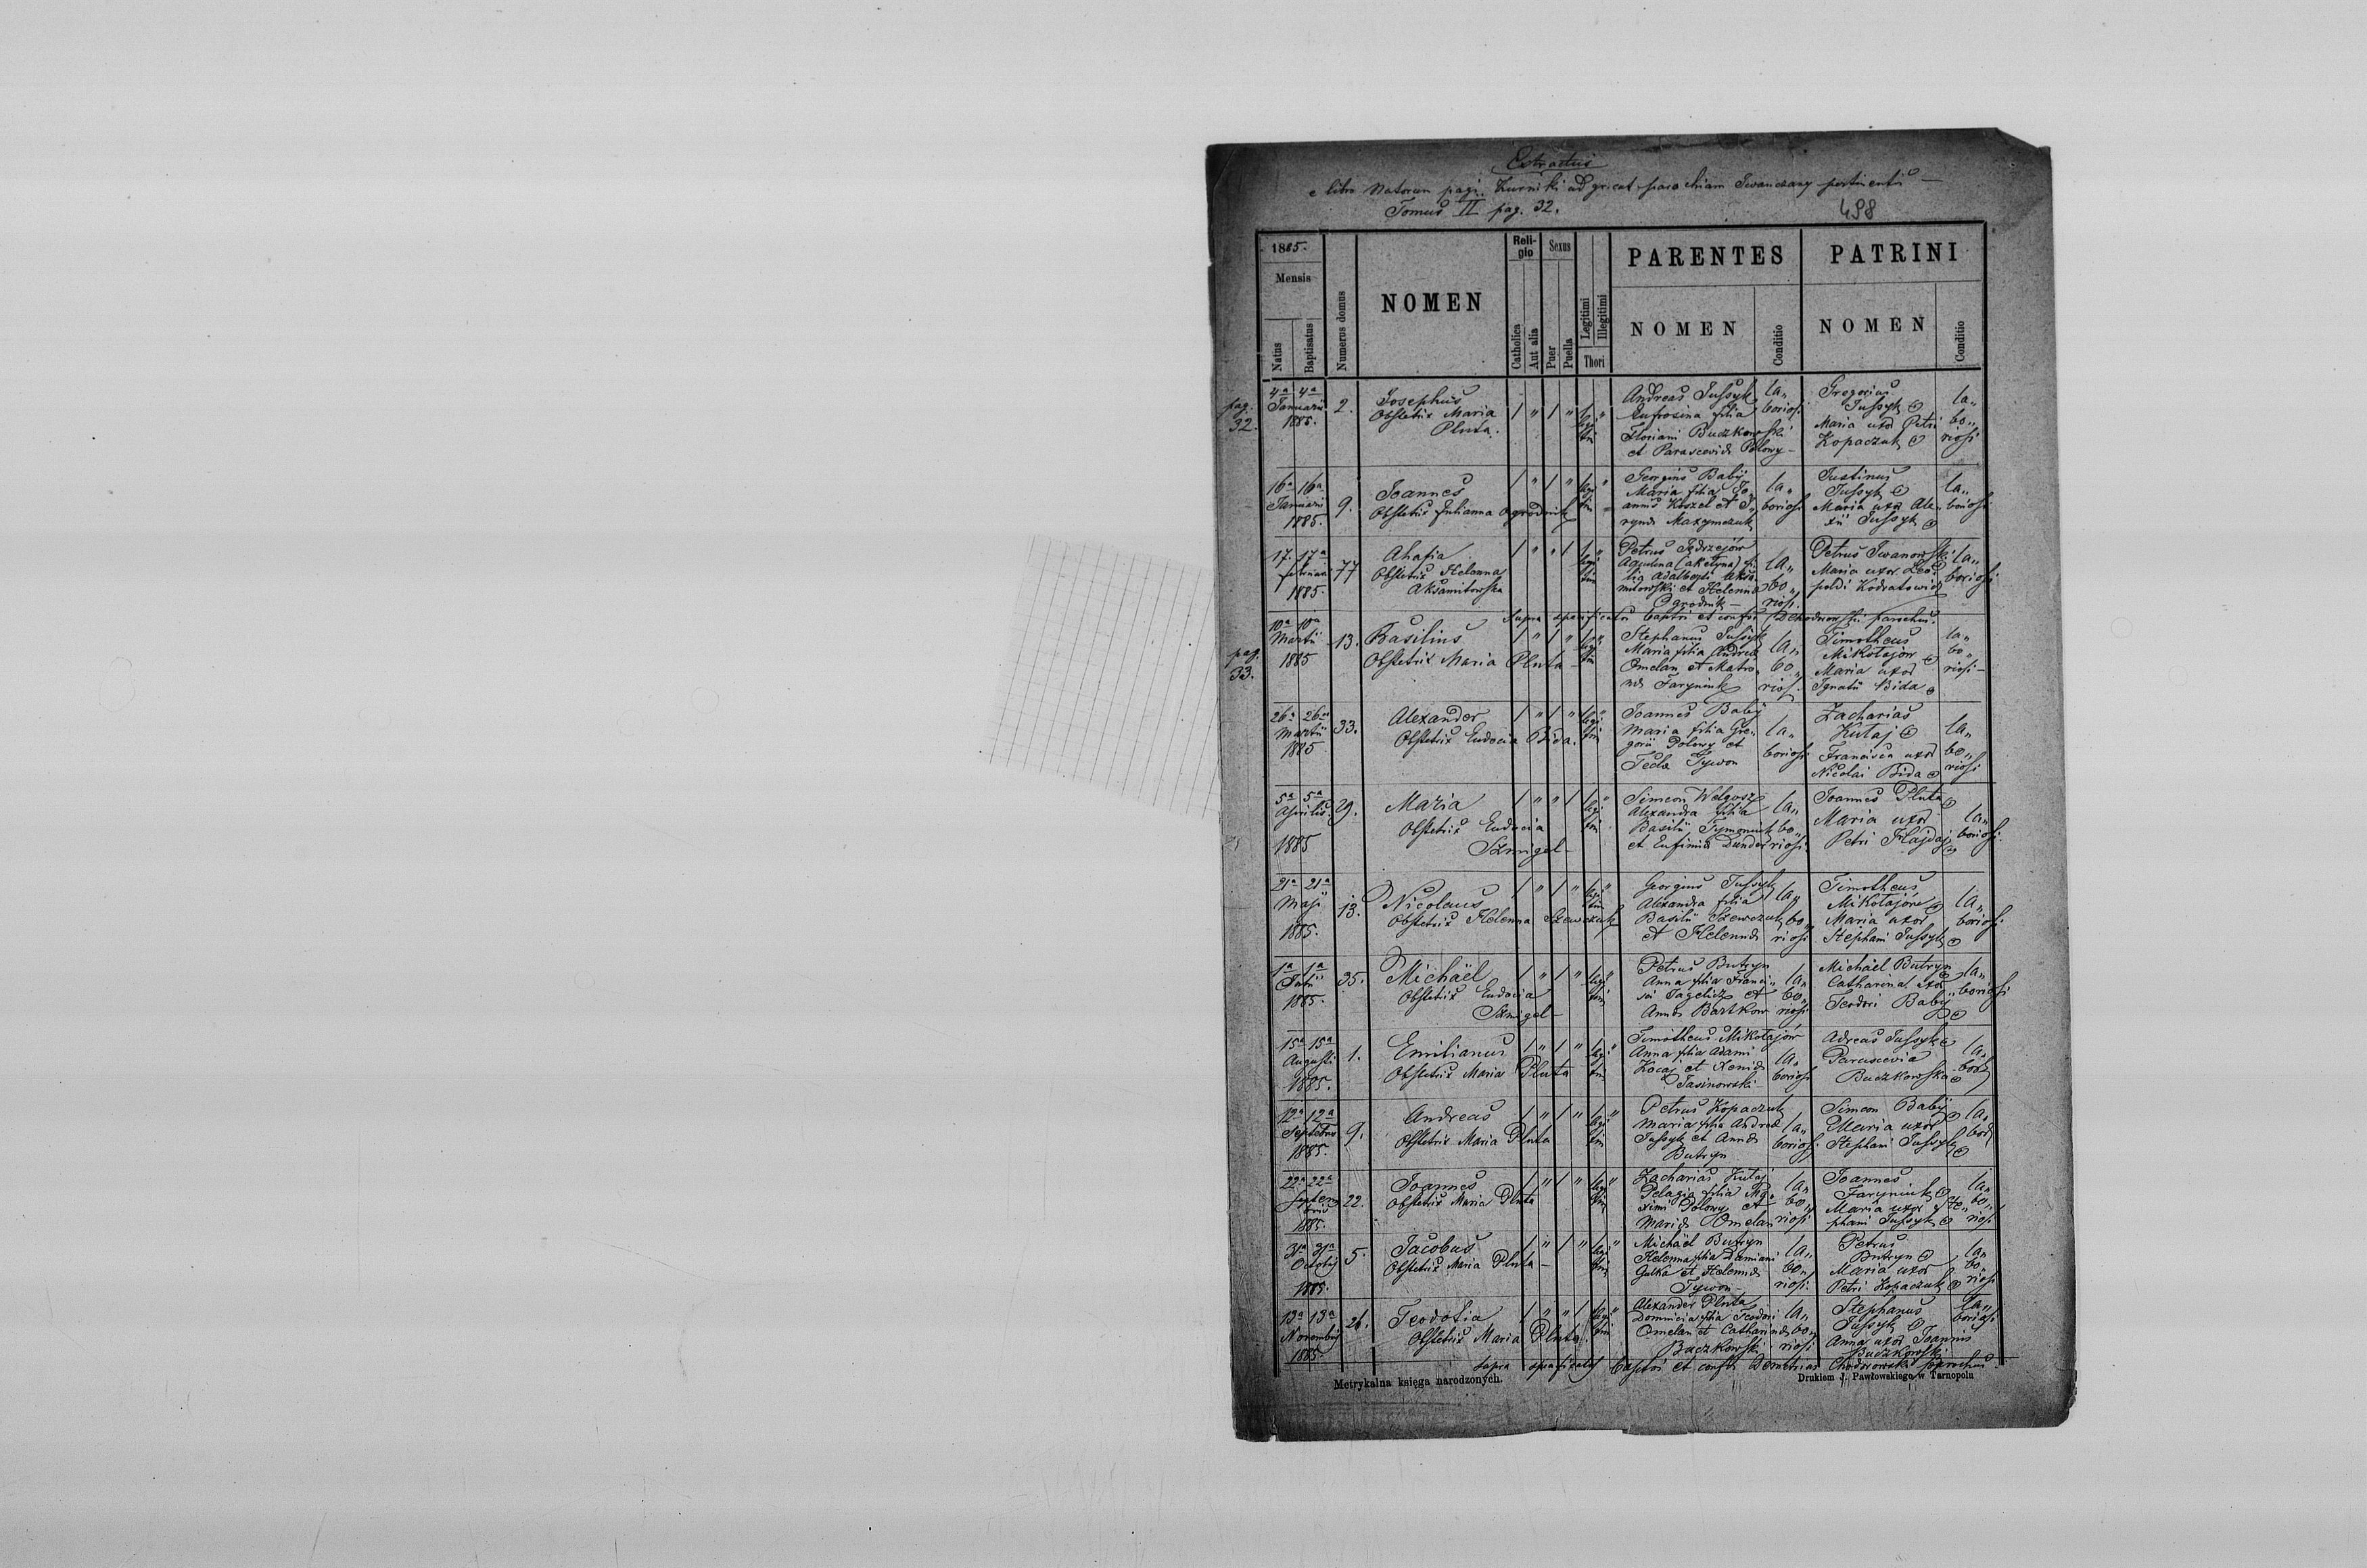 Extractus
e libro Natorum pagi Kurniki ad gr.cat. parochiam Iwanczany pertinentis —
Tomus II pag. 32.
498
1885.
Mensis
Natus
Baptisatus
Numerus domus
NOMEN
Religio
Catholica
Aut alia
Sexus
Puer
Puella
Legitimi
Illegitimi
Thori
PARENTES
NOMEN
Conditio
PATRINI
NOMEN
Conditio
pag. 32.
4a 4a Januarii 1885.
2.
Josephus
Obstetrix Maria Pluta.
legitimi
Andreas Jussyk
Eufrosina filia
Floriani Buczkowski
et Parasceviae Polowy —
laboriosi
Gregorius
Jussyk
Maria uxor Petri
Kopaczuk
laboriosi
16a 16a Januarii 1885.
9.
Joannes
Obstetrix Julianna Ogrodnik
Georgius Babij
Maria filia Joannis Koszel et
Maxymczuk
laboriosi
Justinus
Jussyk
Maria uxor Alexii Jussyk
laboriosi
17. 17a februarii 1885.
77
Ahafia
Obstetrix Helenna
Aksamitowska
Petrus Jędrzejów
filia Adalberti Aksamitowski et Helenna
Ogrodnik —
laboriosi
Petrus Iwanowski
Maria uxor Leopoldi
laboriosi
Supra specificatos baptisavi et confir.
parochus.
pag. 33.
10a 10a Martii 1885
13.
Basilius
Obstetrix Maria Pluta —
Stephanus Jussyk
Maria filia Andreae
Omelan et Matronae Faryniuk
laboriosi
Timotheus
Mikołajów
Maria uxor
Ignatii Bida
laboriosi —
26a 26a Martii 1885
33.
Alexander
Obstetrix Eudocia Bida.
Joannes Babij
Maria filia Gregorii Polowy et
Teclae Tywon
laboriosi
Zacharias
Kutaj
Francisca uxor
Nicolai Bida
laboriosi
5a 5a Aprilis 1885
29.
Maria
Obstetrix Eudocia
Szmigel —
Simeon Welgosz
Alexandra filia
Basilii Tymeniuk
et Eufimiae Dunder
laboriosi
Joannes Pluta
Maria uxor
Petri Hajdaj
laboriosi.
21a 21a Maji 1885.
13.
Nicolaus
Obstetrix Helenna Szewczuk
Georgius Jussyk
Alexandra filia
Basilii Szewczuk
et Helennae
laboriosi
Timotheus
Mikołajów
Maria uxor
Stephani Jussyk
laboriosi
1a 1a Julii 1885.
35.
Michaël
Obstetrix Eudocia
Szmigel —
Petrus Butryn
Anna filia Francisci et
Annae Bartkow
laboriosi
Michaël Butryn
Catharina uxor
Teodori Babij
laboriosi
15a 15a Augusti 1885.
1.
Emilianus
Obstetrix Maria Pluta
Timotheus Mikołajów
Anna filia Adami
Kocaj et Xeniae
Jasinowski —
laboriosi
Adreas Jussyk
Parascevia
Buczkowska
12a 12a Septebris 1885.
9.
Andreas
Obstetrix Maria Pluta
Petrus Kopaczuk
Maria filia Andreae
Jussyk et Annae
Butryn
laboriosi
Simeon Babij
Maria uxor
Stephani Jussyk
22a 22a Septembris 1885.
22.
Joannes
Obstetrix Maria Pluta
Zacharias Kutaj
Pelagia filia Maximi Polowy et
Mariae Omelan
laboriosi
Joannes
Faryniuk
Maria uxor Stephani Jussyk
laboriosi
31a 31a Octobris 1885.
5.
Jacobus
Obstetrix Maria Pluta —
Michaël Butryn
Helenna filia Damiani
Gulka et Helennae
Tywon —
laboriosi.
Petrus
Butryn
Maria uxor
Petri Kopaczuk
laboriosi
13a 13a Novembris 1885.
26.
Teodosia
Obstetrix Maria Pluta.
Alexander Pluta
Dominicia filia Teodori
Omelan et Catharinae
Buczkowski
laboriosi
Stephanus
Jussyk
Anna uxor Joannis
Buczkowski
laboriosi
Supra specificatos baptisavi et confir. Demetrius Chodorowski parochus.
Metrykalna księga narodzonych.
Drukiem J. Pawłowskiego w Tarnopolu